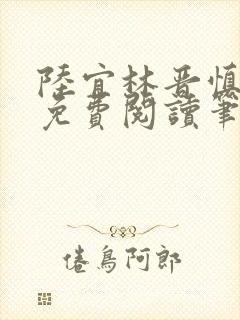 陸宜林晋慎
免費閱讀筆
倦鳥阿郎